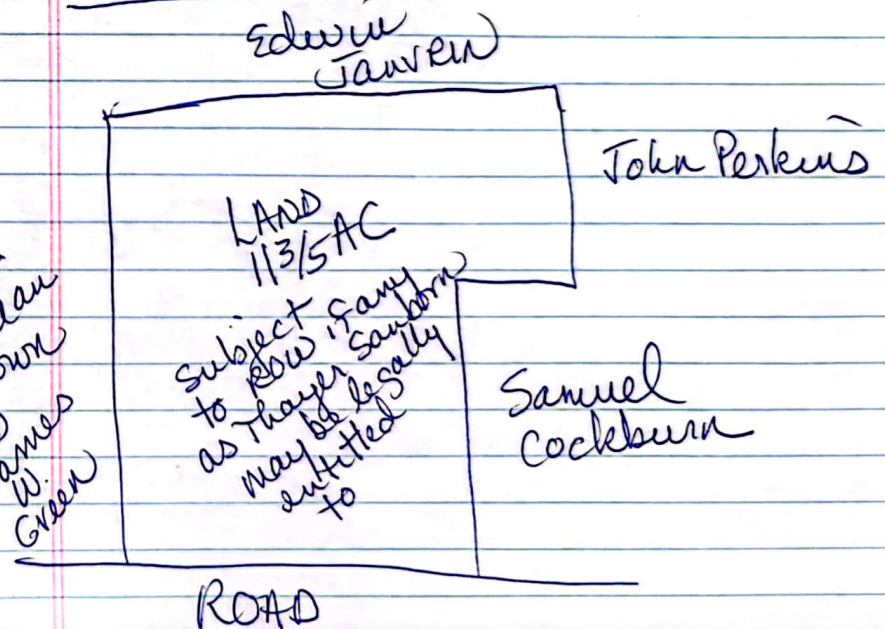 Edwin
Janvrin
John Perkins
LAND
11 3/5 AC
subject
to ROW, if any
as Thayer Sanborn
may be legally
entitled
to
Samuel
Cockburn
W.
Green
ROAD